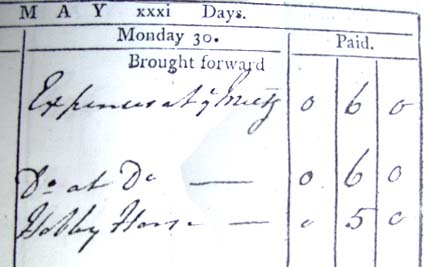 MAY xxxi Days.
Monday 30. Paid.
Brought forward
Expences at ye Meetg 0 6 0
Do at Do — 0 6 0
Hobby Horse — 0 5 0